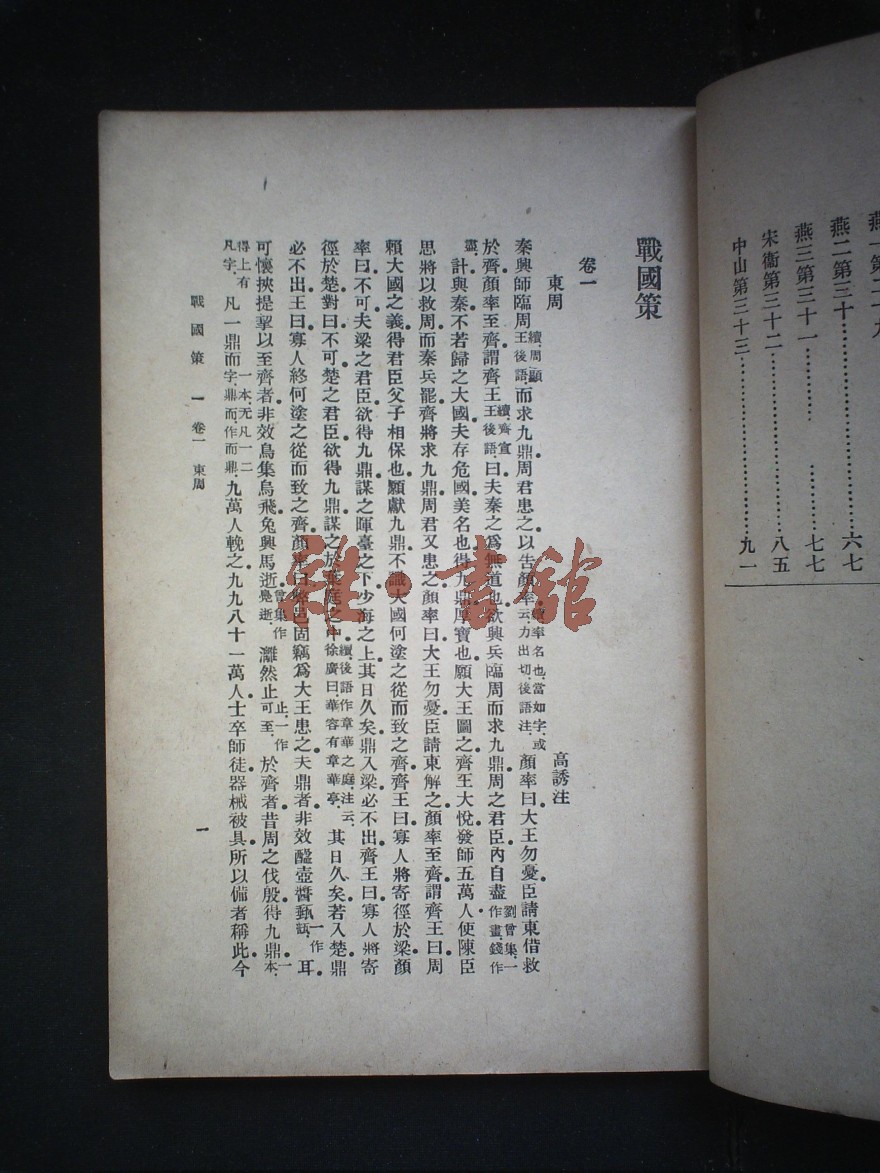 燕二第三十………………六七
燕三第三十一………………七七
宋衞第三十二………………八五
中山第三十三………………九一
戰國策
卷一
東周
高誘注
秦興師臨周續周顯王後語而求九鼎周君患之以告顏率續率名也當如字或云力出切後語注顏率曰大王勿憂臣請東借救
於齊顏率至齊謂齊王續齊宣王後語曰夫秦之爲無道也欲興兵臨周而求九鼎周之君臣內自盡劉曾集一作畫錢作
盡計與秦不若歸之大國夫存危國美名也得九鼎厚寶也願大王圖之齊王大悅發師五萬人使陳臣
思將以救周而秦兵罷齊將求九鼎周君又患之顏率曰大王勿憂臣請東解之顏率至齊謂齊王曰周
賴大國之義得君臣父子相保也願獻九鼎不識大國何塗之從而致之齊齊王曰寡人將寄徑於梁顏
率曰不可夫梁之君臣欲得九鼎謀之暉臺之下少海之上其日久矣鼎入梁必不出齊王曰寡人將寄
徑於楚對曰不可楚之君臣欲得九鼎謀之於葉庭之中續後語作章華之庭注云徐廣曰華容有章華亭其日久矣若入楚鼎
必不出王曰寡人終何塗之從而致之齊顏率曰弊邑固竊爲大王患之夫鼎者非效醯壺醬甀一作瓿耳
可懷挾提挈以至齊者非效鳥集烏飛兔興馬逝曾集作鳧逝灕然止止一作可至於齊者昔周之伐殷得九鼎一本
得上有凡字凡一鼎而一本无凡一二字鼎而作而鼎九萬人輓之九九八十一萬人士卒師徒器械被具所以備者稱此今
戰國策 一 卷一 東周
一
雜·書館